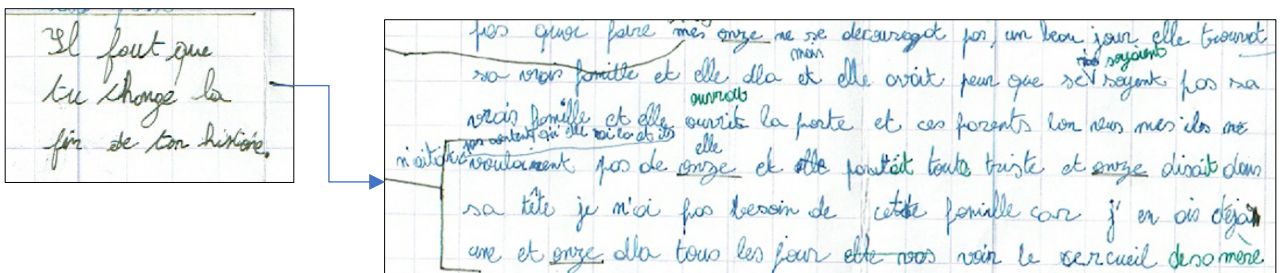 Il faut que
tu change la
fin de ton histoire.
pas quoi faire mes onze ne se decouragat pas, un beau jour elle trouvat
sa vrais famille et elle alla mais et elle avait peur que se soyent soyaient pas sa
vrais famille et elle ouvrit ouvrait la porte et ces parents lon mes ils ne
pas content qu'elle soi la et ils
n'aitait voulaient pas de onze et elle partait toute triste et onze disait dans
sa tête je n'ai pas besoin de cette famille car j'en ais déjà
une et onze alla tous les jour elle voir le cercueil de sa mère